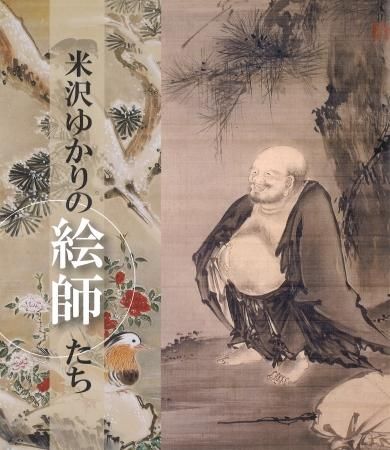 米沢ゆかりの絵師たち